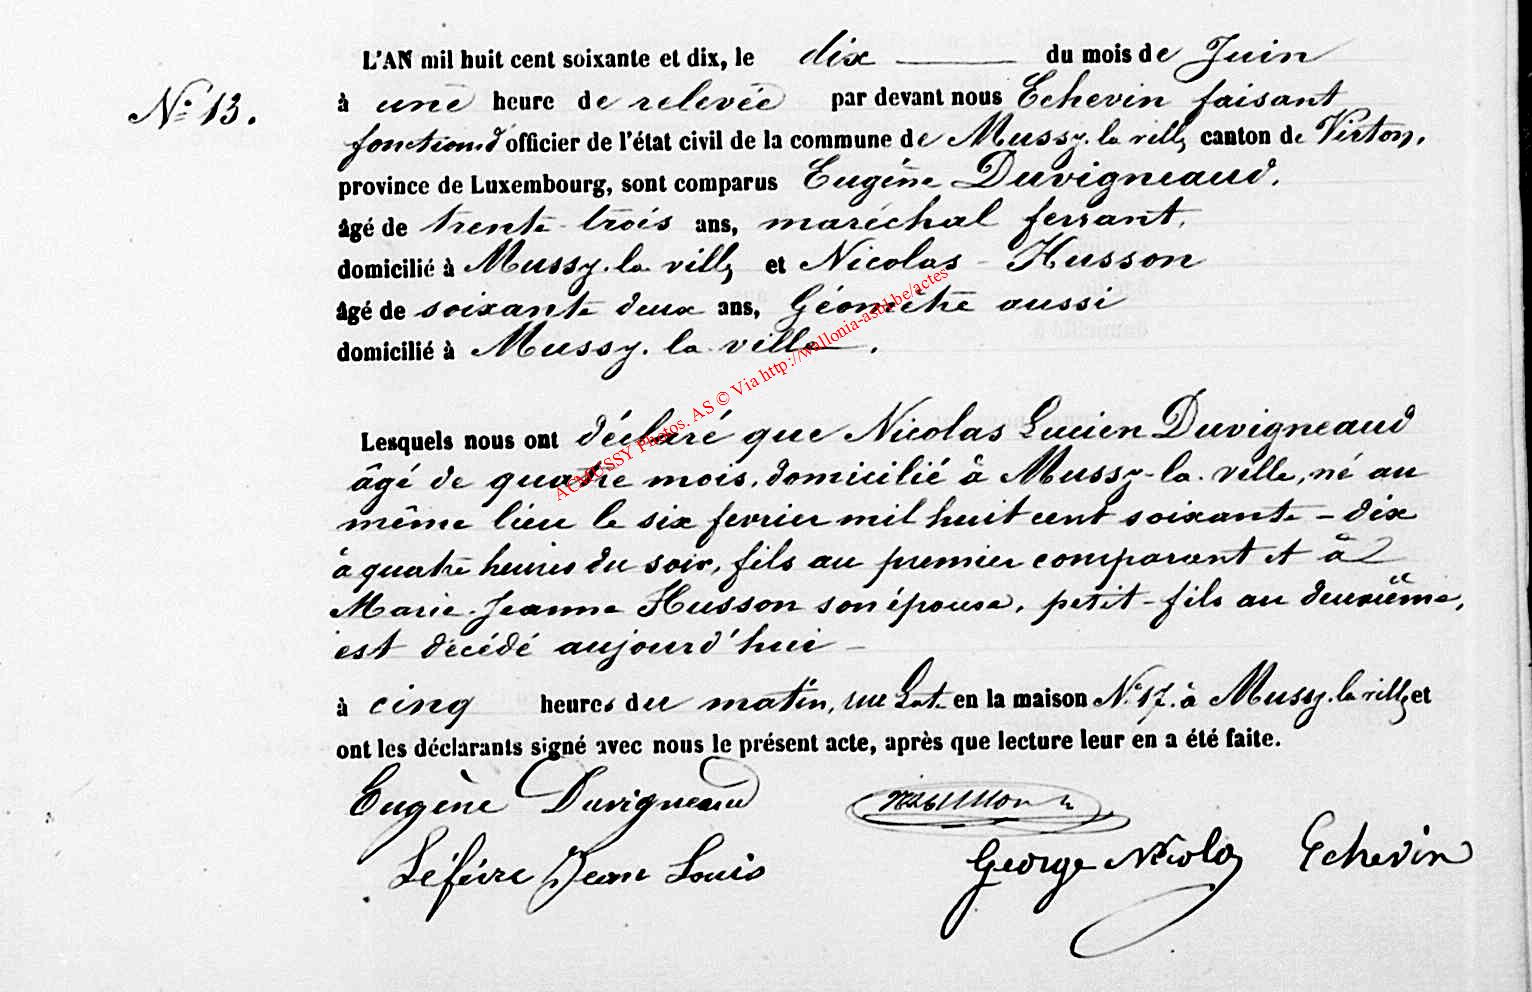 L'AN mil huit cent soixante et dix, le dix du mois de Juin
N° 13.
à une heure de relevée par devant nous Echevin faisant
fonction d'officier de l'état civil de la commune de Mussy-la-ville, canton de Virton,
province de Luxembourg, sont comparus Eugène Duvigneaud,
âgé de trente-trois ans, maréchal ferrant,
domicilié à Mussy-la-ville, et Nicolas Husson
âgé de soixante deux ans, Géomètre aussi
domicilié à Mussy-la-ville.
ACMUSSY Photos. AS © Via http://wallonia-asbl.be/actes
Lesquels nous ont déclaré que Nicolas Lucien Duvigneaud
âgé de quatre mois, domicilié à Mussy-la-ville, né au
même lieu le six fevrier mil huit cent soixante-dix
à quatre heures du soir, fils au premier comparant et à
Marie-Jeanne Husson son épouse, petit-fils au deuxième,
est décédé aujourd'hui
à cinq heures du matin, rue en la maison N° 17. à Mussy-la-ville, et
ont les déclarants signé avec nous le présent acte, après que lecture leur en a été faite.
Eugène Duvigneaud
Léfèvre Jean Louis George Nicolas Echevin